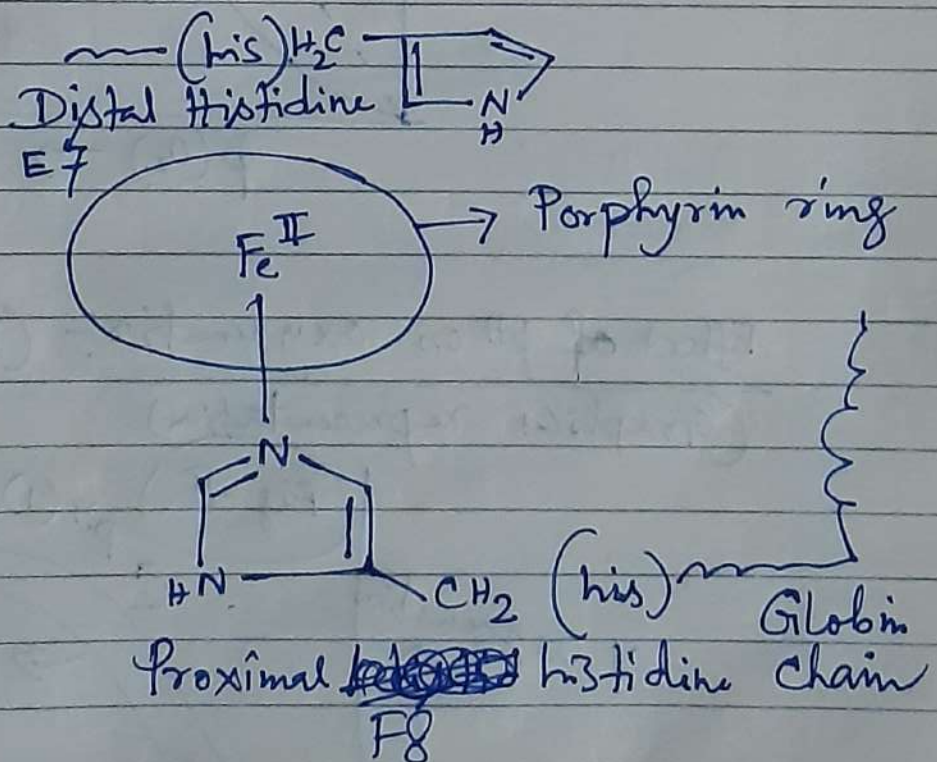 (his) H₂C
N
H
Distal Histidine
E7
Fe^II
→ Porphyrin ring
N
HN
CH₂ (his)
Globin
Proximal histidine Chain
F8